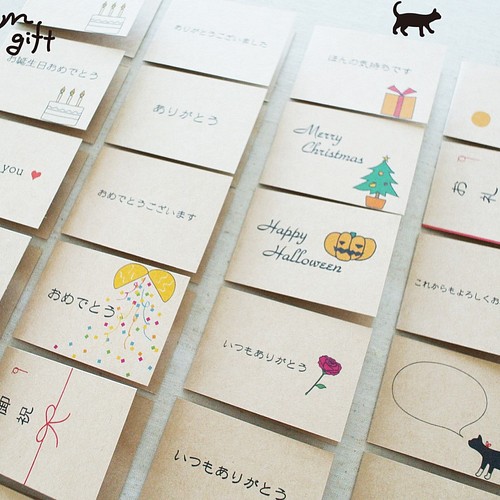 gift
お誕生日おめでとう
you
おめでとう
御祝
ありがとうございました
ありがとう
おめでとうございます
ほんの気持ちです
Merry
Christmas
Happy
Halloween
いつもありがとう
いつもありがとう
お礼
これからもよろしくお